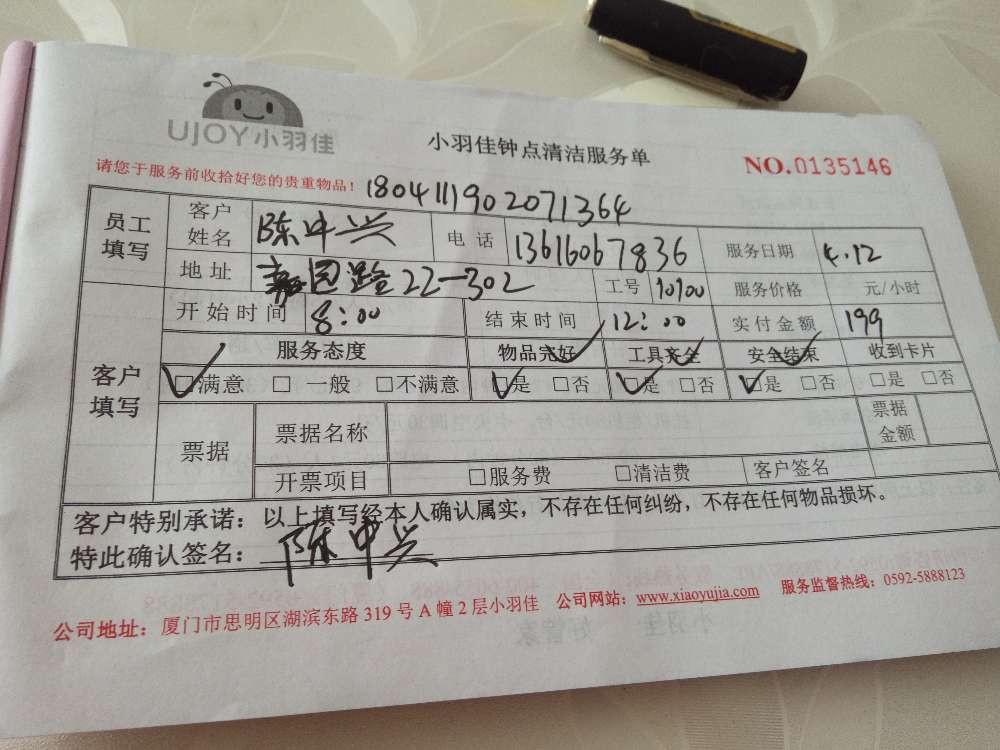 UJOY小羽佳
小羽佳钟点清洁服务单
NO.0135146
请您于服务前收拾好您的贵重物品！
180411902071364
员工填写 客户姓名 陈中兴 电话 13616067836 服务日期 4.12
地址 嘉园路22-302 工号 10100 服务价格 元/小时
客户填写 开始时间 8:00 结束时间 12:00 实付金额 199
服务态度 物品完好 工具齐全 安全结束 收到卡片
☑满意 □一般 □不满意 ☑是 □否 ☑是 □否 ☑是 □否 □是 □否
票据 票据名称 票据金额
开票项目 □服务费 □清洁费 客户签名
客户特别承诺：以上填写经本人确认属实，不存在任何纠纷，不存在任何物品损坏。
特此确认签名：陈中兴
公司地址：厦门市思明区湖滨东路319号A幢2层小羽佳 公司网站：www.xiaoyujia.com 服务监督热线：0592-5888123